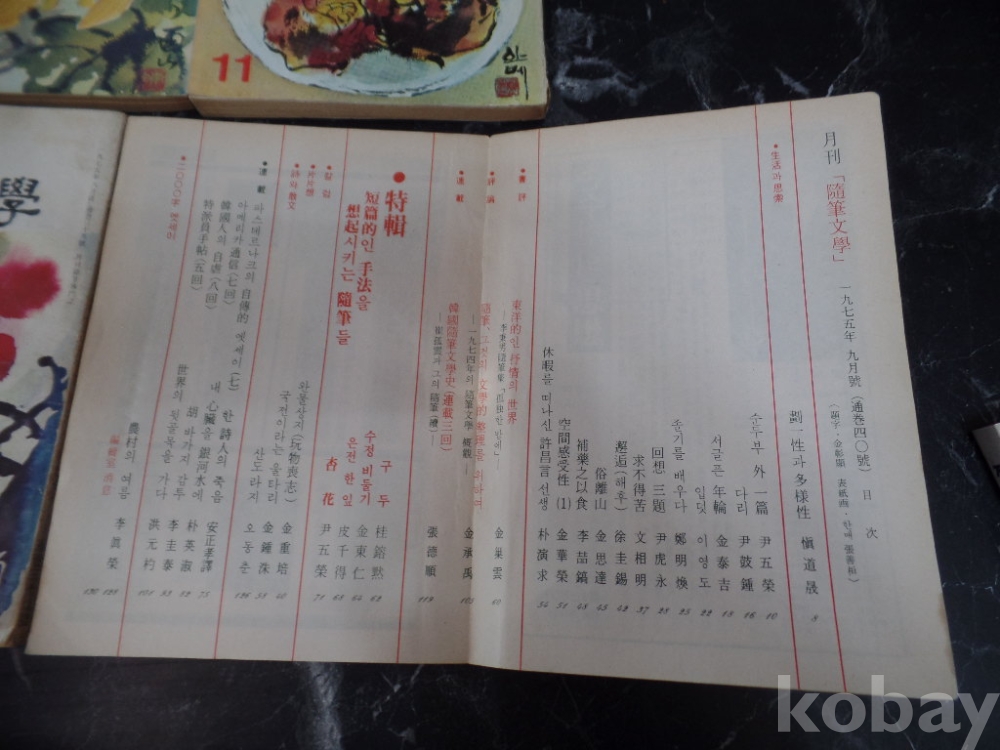 月刊「隨筆文學」 一九七五年 九月號 (通巻四〇號) 目次
(題字·金彰顯 表紙画·한메 張善相)
劃一性과 多樣性 愼道晟 8
•生活과 思索
순두부 外 一篇 尹五榮 10
다리 尹鼓鍾 16
서글픈 年輪 金泰吉 18
입덧 이영도 22
줄기를 배우다 鄭明煥 25
回想 三題 尹虎永 28
求不得苦 文相明 37
邂逅(해후) 徐圭錫 43
俗離山 金思達 45
補藥之以食 李喆鎬 48
空間感受性 (1) 金華榮 51
休暇를 떠나신 許昌言선생 朴演求 54
•書評
東洋的인 抒情의 世界 金巢雲
•評論
隨筆, 그것의 文學的 整理를 위하여 金承禹 103
—一九七四年의 隨筆文學 槪觀—
•連載
韓國隨筆文學史(連載三回) 張德順 119
—崔孤雲과 그의 隨筆(續)—
•特輯
短篇的인 手法을
想起시키는 隨筆들
구두 桂鎔默 62
수정 비둘기 金東仁 64
은전 한 닢 皮千得 68
杏花 尹五榮 71
완물상지(玩物喪志) 金重培 60
국전이라는 울타리 金鍾洙 59
산도라지 오동춘 126
•連載
파스테르나크의 自傳的 엣세이(七) 安正孝譯 75
아메리카 通信(七回) 한 詩人의 죽음 朴英淑
韓國人의 自虐(八回) 내 心臟을 銀河水에 李圭泰 93
特派員手帖(五回) 胡 바가지 감투 洪元杓 101
世界의 뒷골목을 가다
•二〇〇〇字 엣세이
農村의 여름 李眞榮
編輯室消息
11
學
kobay